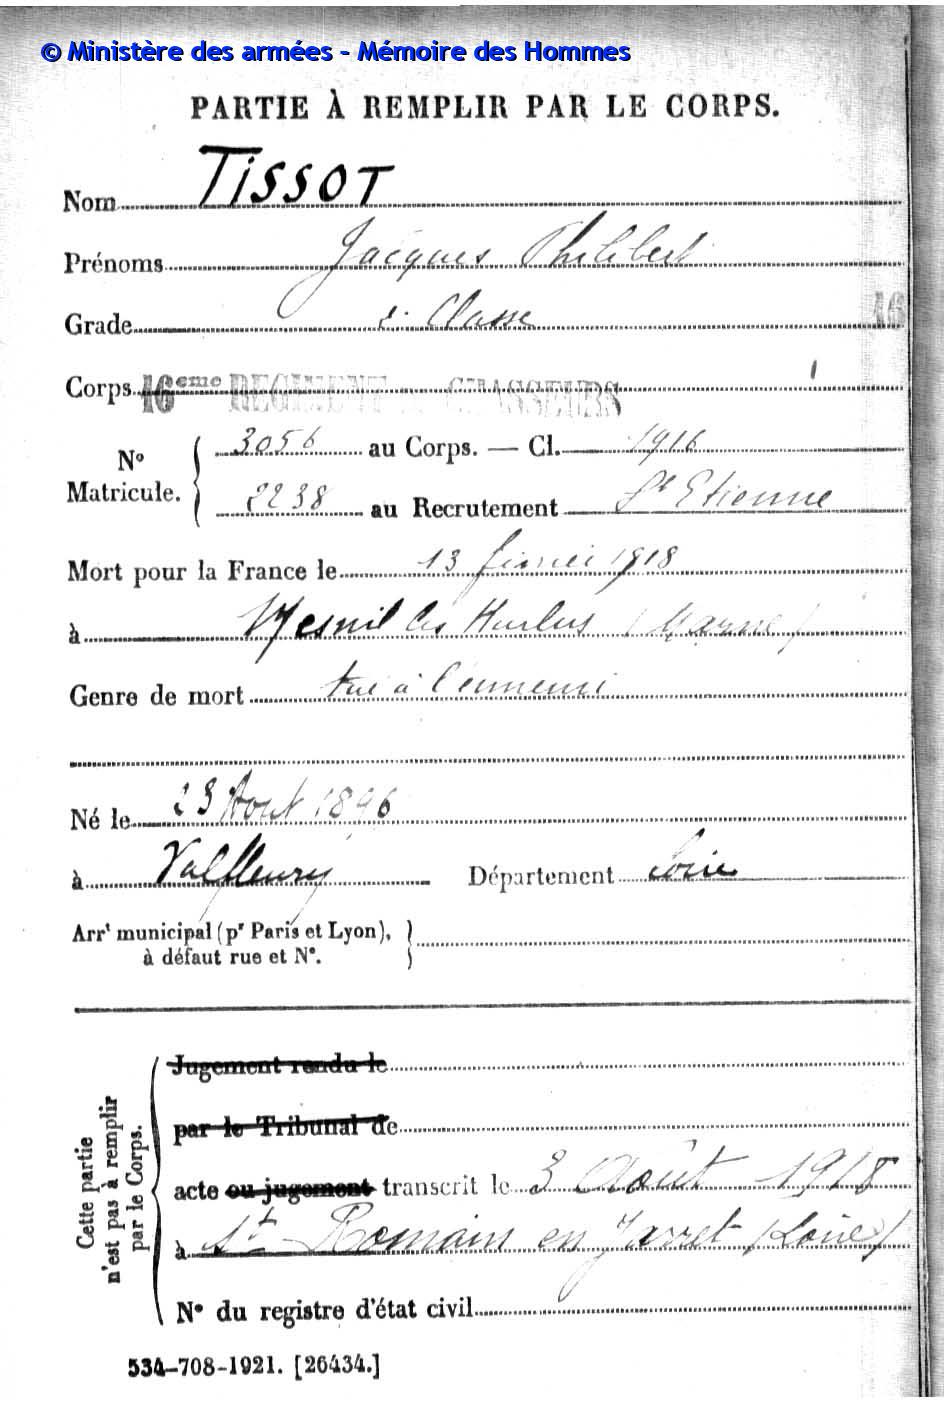 © Ministère des armées - Mémoire des Hommes
PARTIE À REMPLIR PAR LE CORPS.
Nom TISSOT
Prénoms Jacques Philibert
Grade 2. Classe
16
Corps 16eme REGIMENT CHASSEURS
No Matricule. { 3056 au Corps. — Cl. 1916
2238 au Recrutement St Etienne
Mort pour la France le 13 février 1918
à Mesnil les Hurlus (Marne)
Genre de mort tué à l'ennemi
Né le 23 Aout 1896
à Valfleury Département Loire
Arrt municipal (pr Paris et Lyon),
à défaut rue et N°.
Cette partie
n'est pas à remplir
par le Corps.
Jugement rendu le
par le Tribunal de
acte ou jugement transcrit le 3 Août 1918
à St Romain en Jarret (Loire)
N° du registre d'état civil
534-708-1921. [26434.]